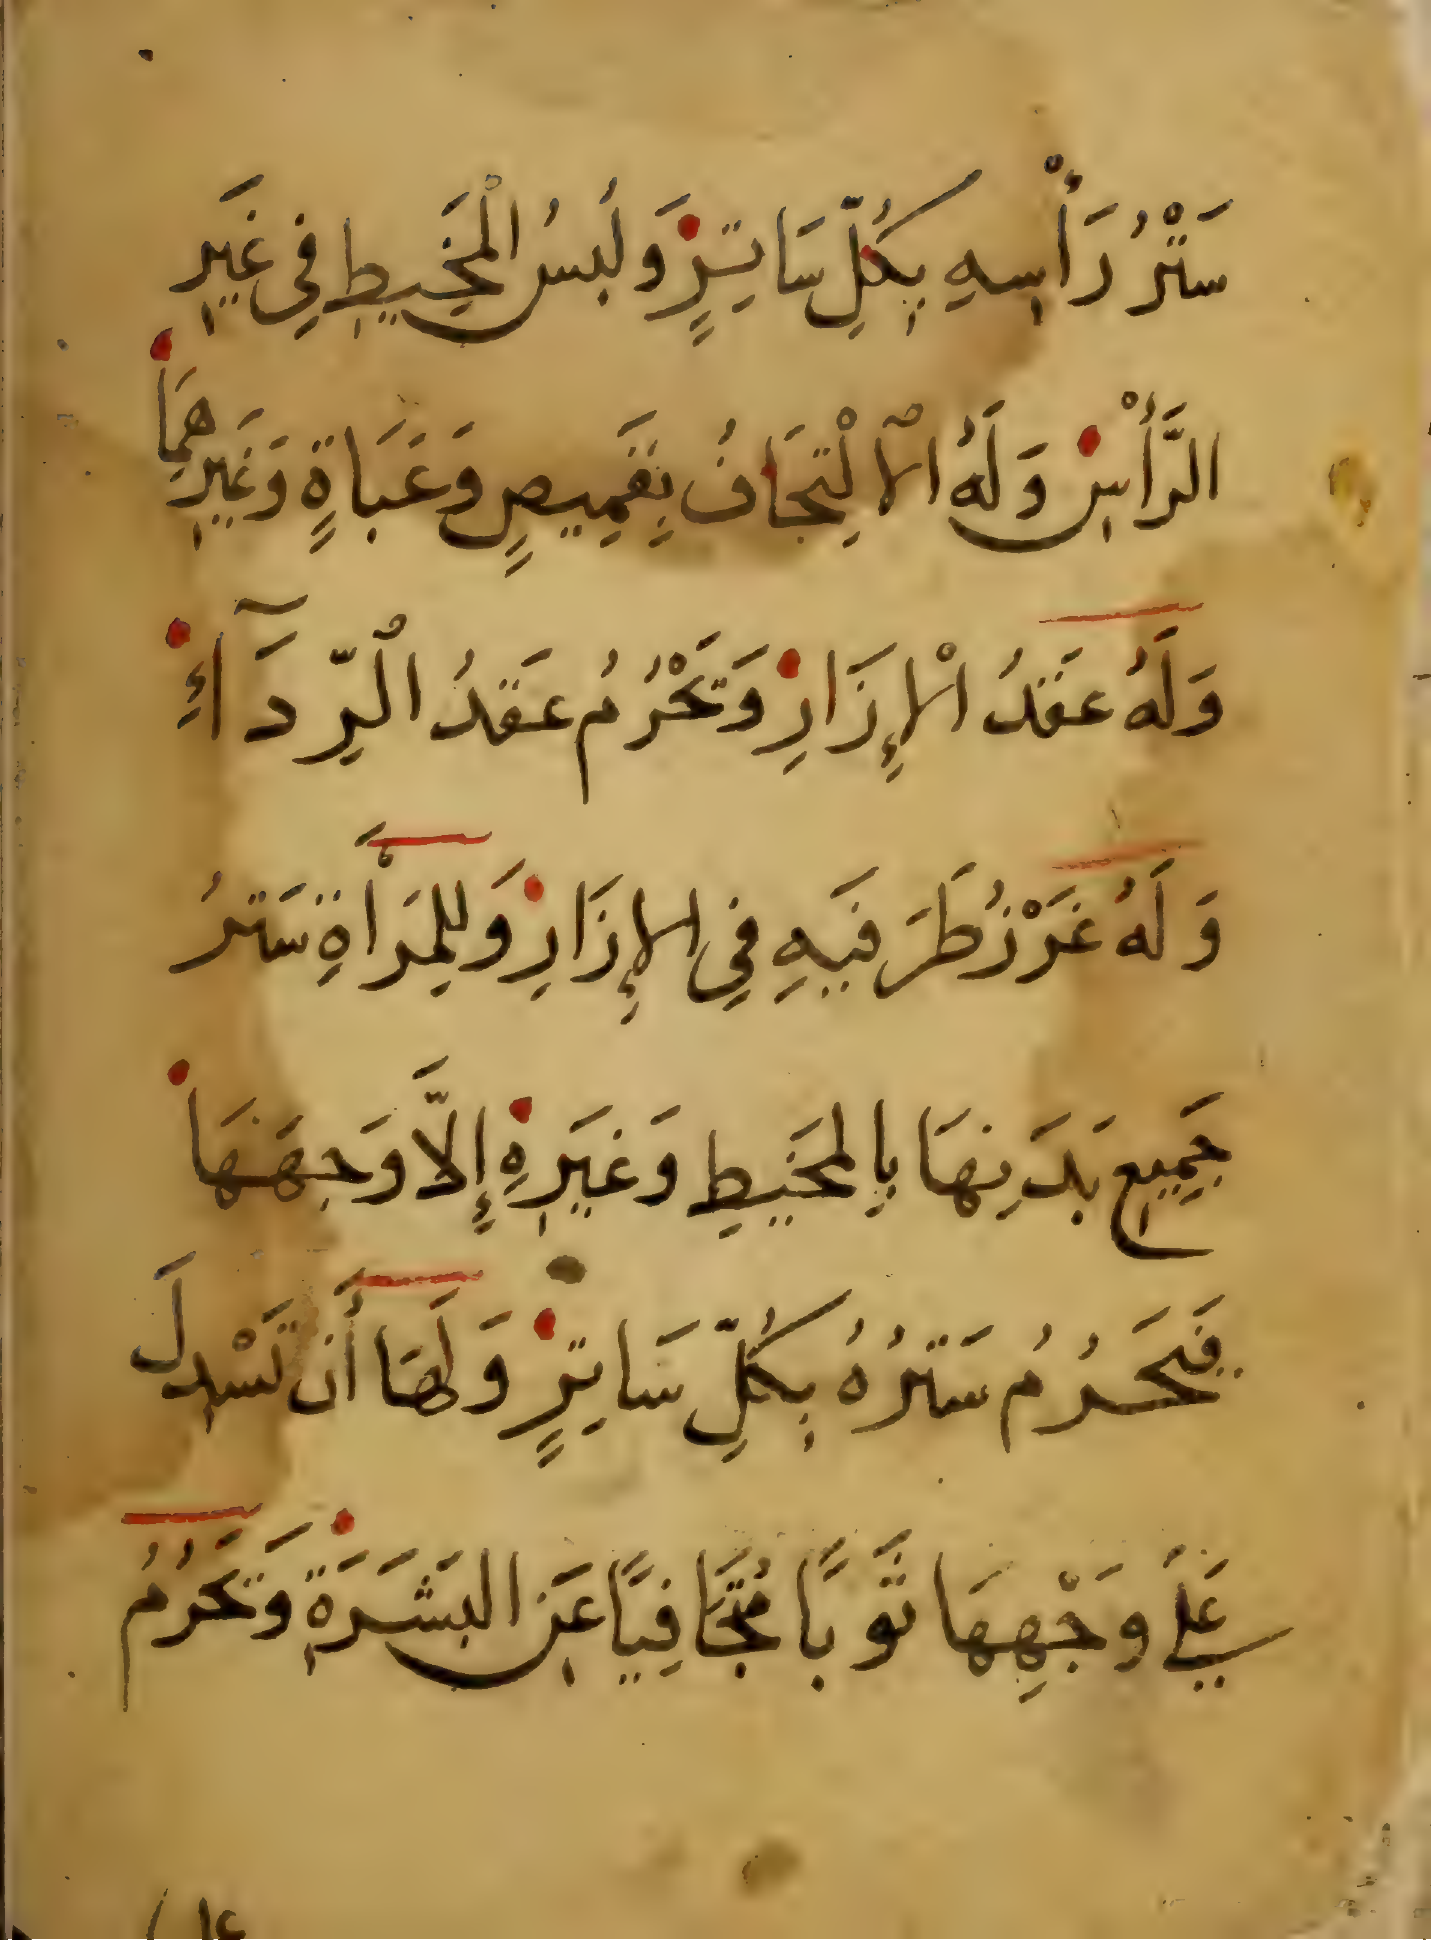 سَتْرُ رَأْسِهِ بِكُلِّ سَاتِرٍ وَلُبسُ الْمَخِيطِ فِي غَيرِ
الرَّأْسِ وَلَهُ الْاِلْتِحَافُ بِقَمِيصٍ وَعَبَاةٍ وَغَيرِهِمَا
وَلَهُ عَقدُ الْإِزَارِ وَتَحْرُمُ عَقدُ الْرِّدَآءِ
وَلَهُ غَرْزُ طَرَفَيهِ فِي الإِزَارِ وَلِلمَرْأَةِ سَترُ
جَمِيعِ بَدَنِهَا بِالمَخِيطِ وَغَيرِهِ إِلاَّ وَجهَهَا
فَيَحرُمُ سَترُهُ بِكُلِّ سَاتِرٍ وَلَهَا أَن تَسْدِلَ
عَلَي وَجْهِهَا ثَوبًا مُتَجَافِيًا عَنِ البَشَرَةِ وَتَحرُمُ